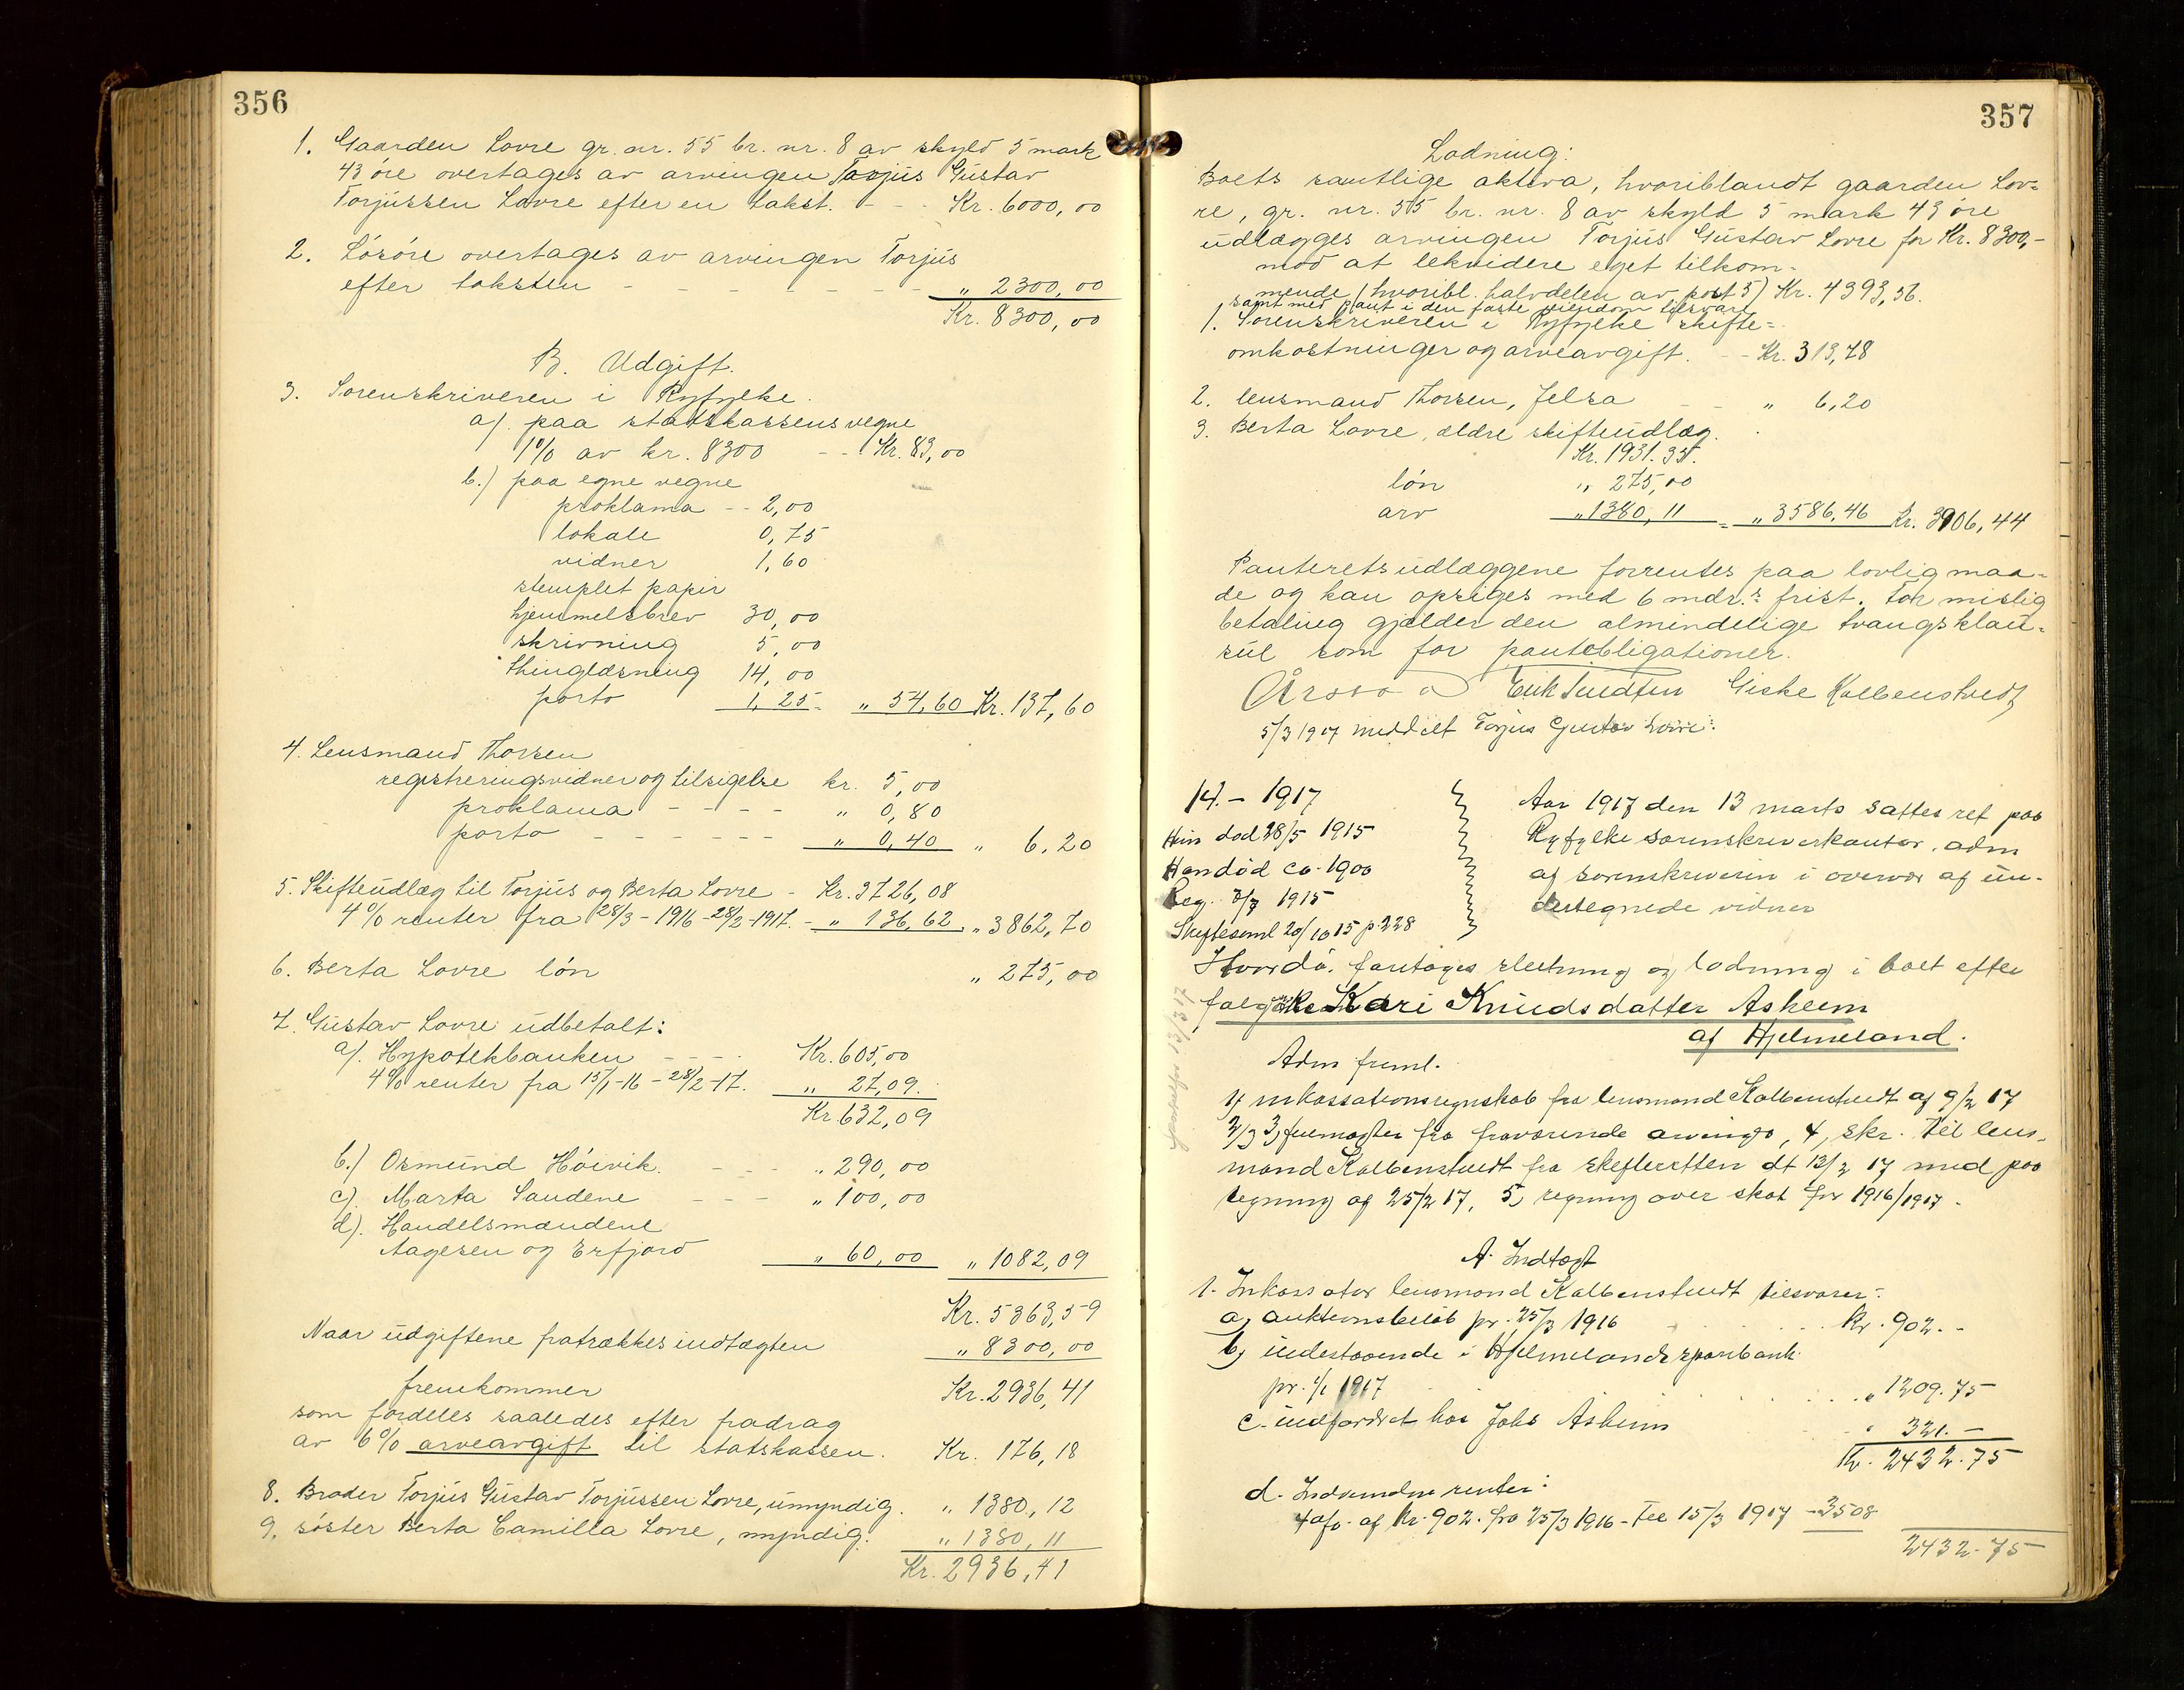 356
1. Gaarden Lovre gr. nr. 55 br. nr. 8 av skyld 5 mark
43 øre overtages av arvingen Torjus Gustav
Torjussen Lovre efter en takst. - - - Kr. 6000,00
2. Løsøre overtages av arvingen Torjus
efter taksten - - - - - - - " 2300,00
Kr. 8300,00
B. Udgift.
3. Sorenskriveren i Ryfylke.
a). paa statskassens vegne
1% av kr. 8300 - - Kr. 83,00
b.) paa egne vegne
proklama - - 2,00
lokale 0,75
vidner 1,60
stemplet papir
hjemmelsbrev 30,00
skrivning 5,00
thinglæsning 14,00
porto 1,25 - " 54,60 Kr. 137,60
4. Lensmand Thorsen
registreringsvidner og tilsigelse kr. 5,00
proklama - - - - " 0,80
porto - - - - - - " 0,40 " 6,20
5. Skifteudlæg til Torjus og Berta Lovre - Kr. 3726,08
4% renter fra 28/3 - 1916 - 28/2 - 1917. - " 136,62. " 3862,70
6. Berta Lovre løn " 275,00
7. Gustav Lovre udbetalt:
a). Hypotekbanken - - - Kr. 605,00
4% renter fra 15/1-16 - 28/2-17. " 27,09.
Kr. 632,09
b.) Osmund Høivik. - - - " 290,00
c). Marta Sandene - - - " 100,00
d). Handelsmændene
Aagesen og Erfjord " 60,00 " 1082,09
Kr. 5363,59
Naar udgiftene fratrækkes indtægten " 8300,00
fremkommer Kr. 2936,41
som fordeles saaledes efter fradrag
av 6% arveavgift til statskassen. Kr. 176,18
8. Broder Torjus Gustav Torjussen Lovre, umyndig. " 1380,12
9. søster Berta Camilla Lovre, myndig. " 1380,11
Kr. 2936,41
357
Lodning:
Boets samtlige aktiva, hvoriblandt gaarden Lov=
re, gr. nr. 55 br. nr. 8 av skyld 5 mark 43 øre
udlægges arvingen Torjus Gustav Lovre for Kr. 8300,-
mod at lekvidere eget tilkom-
mende (hvoribl. halvdelen av post 5) Kr. 4393,56.
samt med pant i den faste eiendom tilsvare
1. Sorenskriveren i Ryfylke skifte=
omkostninger og arveavgift. - - Kr. 313,78
2. lensmand Thorsen, Jelsa - - " 6,20
3. Berta Lovre, ældre skifteudlæg.
Kr. 1931.35.
løn " 275,00
arv " 1380,11 = " 3586,46 Kr. 3906,44
Panteretsudlæggene forrentes paa lovlig maa-
de og kan opsiges med 6 mdr.s frist. For mislig
betaling gjælder den almindelige tvangsklau-
sul som for pantobligationer.
5/3 1917 meddelt Torjus Gustav Lovre.
14. - 1917
Hun død 28/5 1915
Han død ca. 1900
Reg. 3/7 1915
Skiftesaml 20/10 15 p. 228
Aar 1917 den 13 marts sattes ret paa
Ryfylke sorenskriverkontor, adm
af sorenskriveren i overvær af un-
dertegnede vidner
Hvorda. foretages slutning og lodning i boet efter
Kari Knudsdatter Askeim
af Hjelmeland.
Adm freml.
1) inkassationsregnskab fra lensmand Kalbenstvedt af 9/2 17
2/3 3, fuldmagter fra fraværende arvinger, 4, skr. til lens-
mand Kalbenstvedt fra skifteretten dt 13/2 17 med paa
tegning af 25/2 17, 5, regning over skat for 1916/1917.
A. Indtægt
1. Inkassator lensmand Kalbenstvedt tilsvarer:
a, auktionsbeløb pr. 25/3 1916 . . . . Kr. 902. -
b, indestaaende i Hjelmelands sparebank
pr. 1/1 1917 . . . . " 1209.75
c. udfordret hos Johs Askeim " 321. -
Kr. 2432.75
d. Indvundne renter:
4 o/o. af Kr. 902. fra 25/3 1916 - til 15/3 1917 - 3508
2432.75